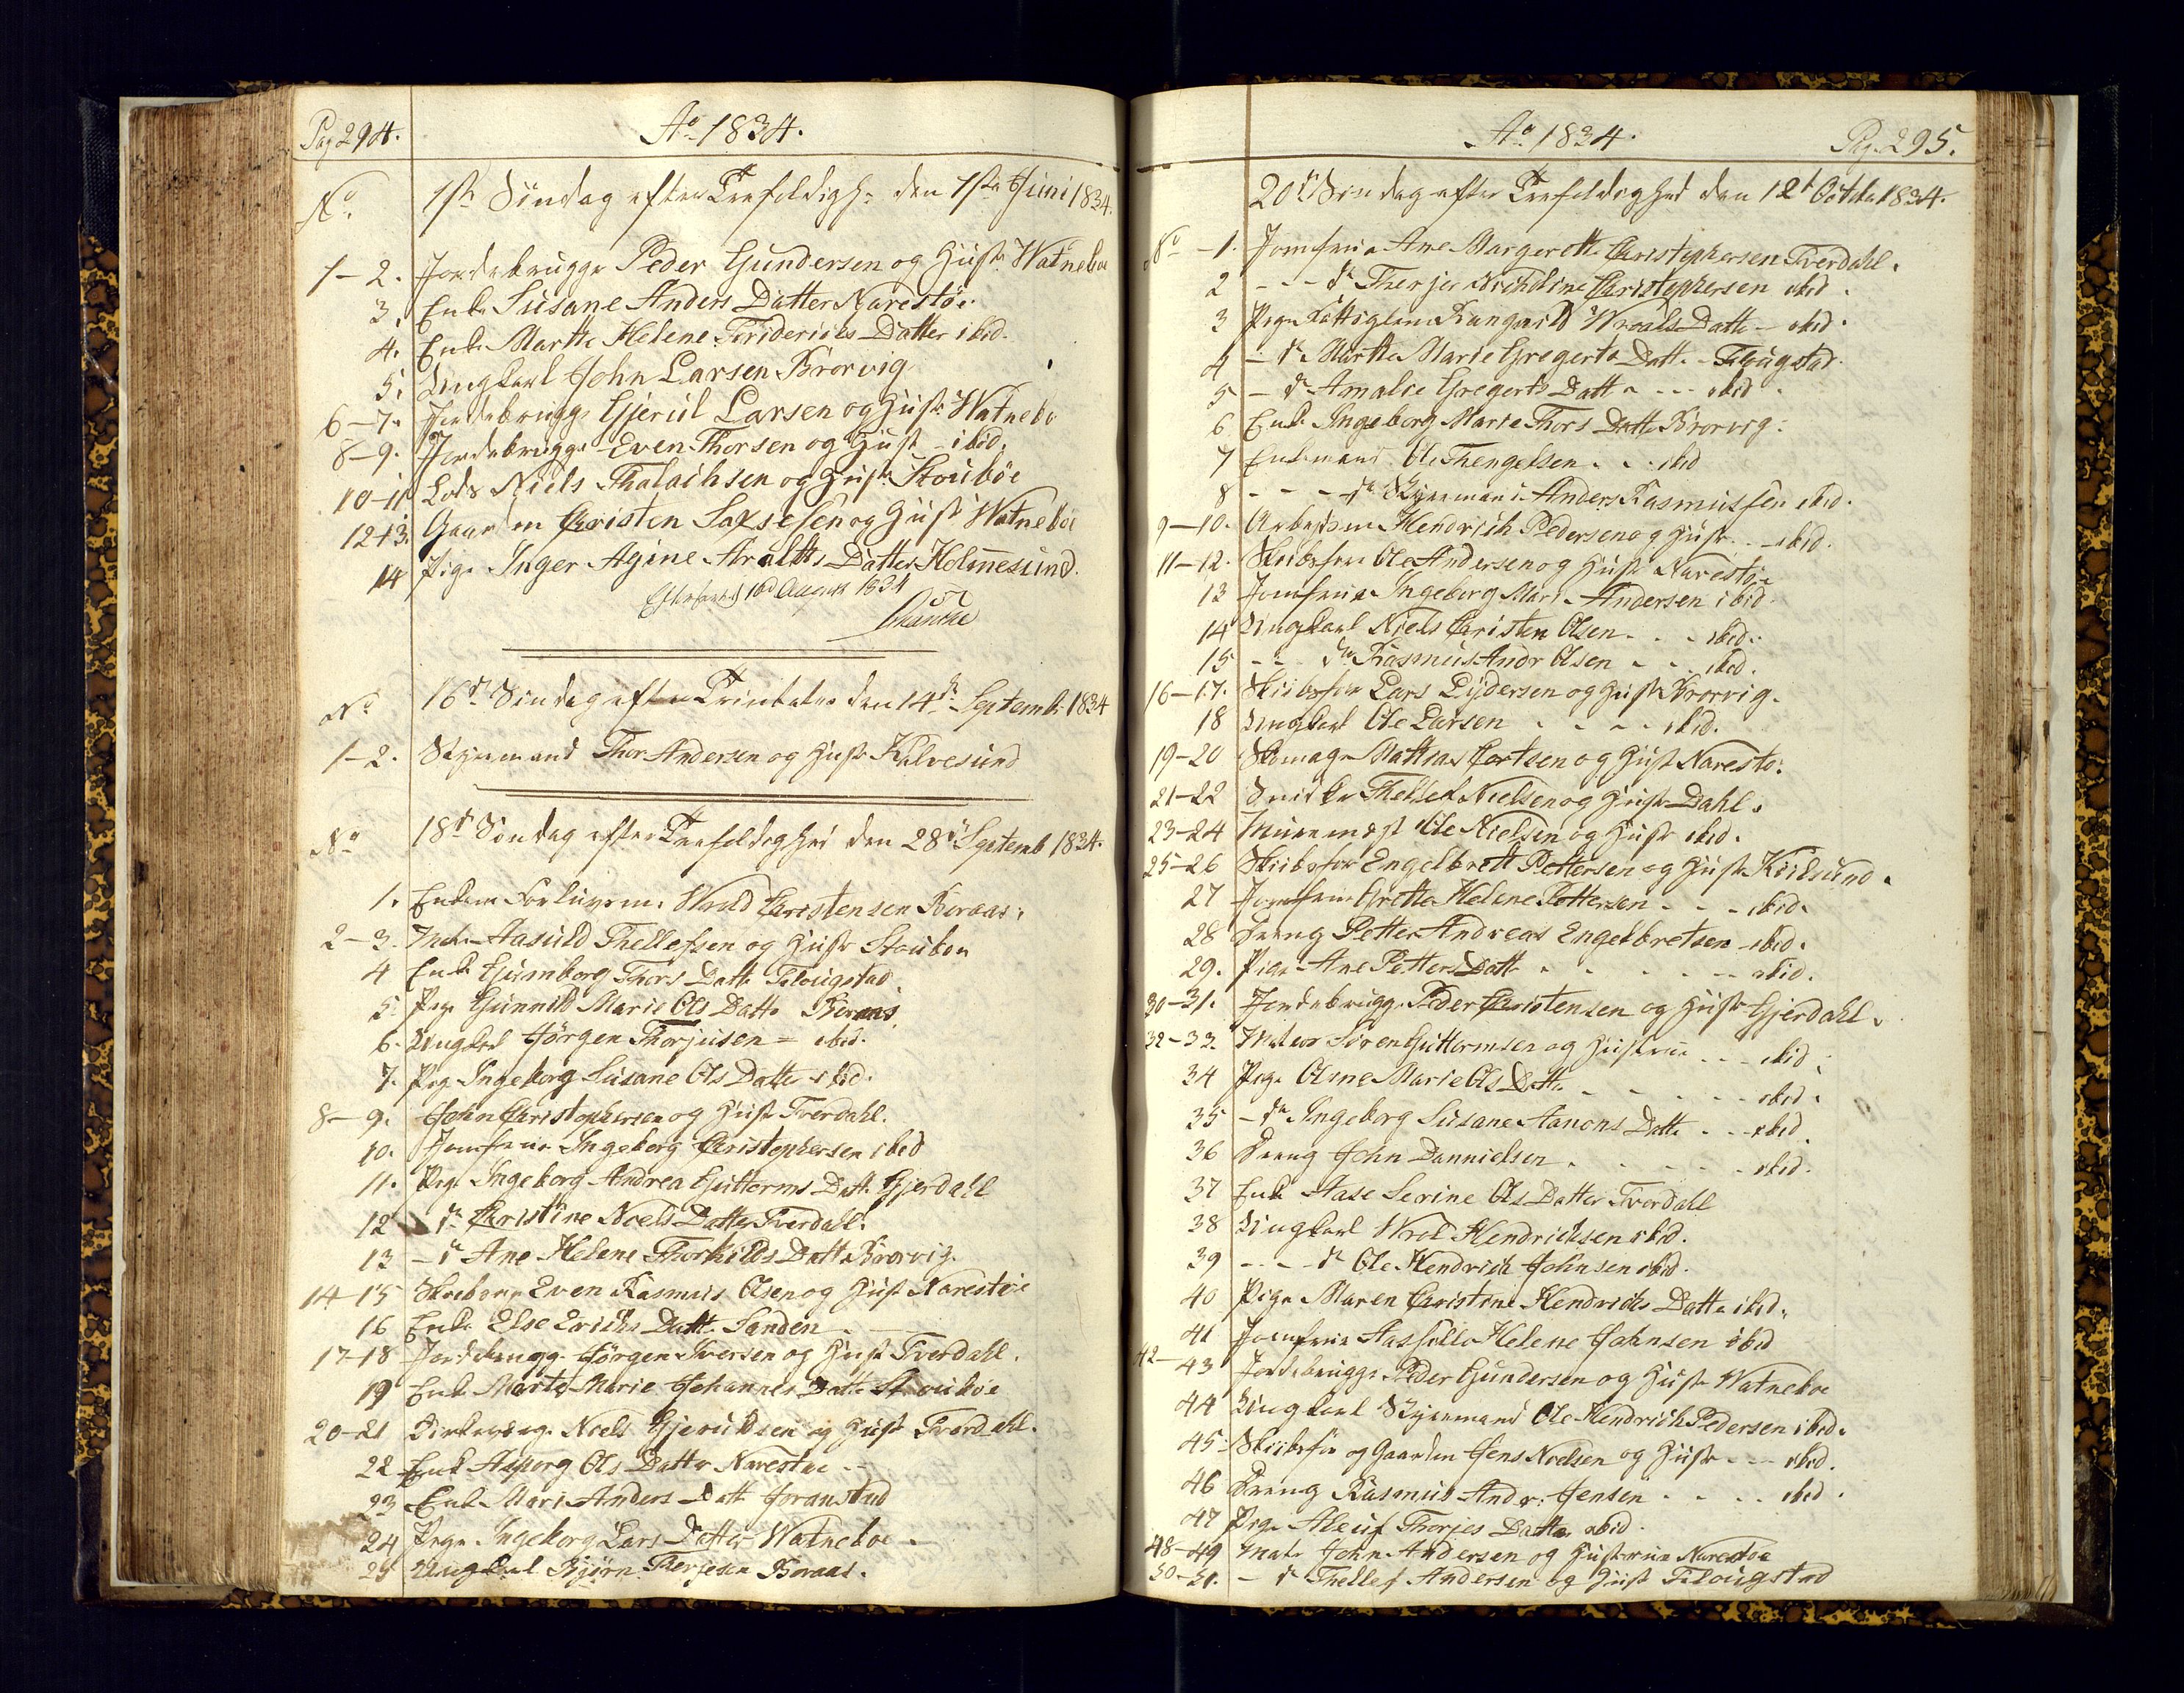 Pag 294.
Ao 1834.
No 1ste Søndag efter Trefoldigh: den 1ste Juni 1834.
1-2. Jordebrugge Peder Gundersen og Hust: Watneboe
3. Enke Susane Anders Datter Narestøe
4. Enke Marthe Helene Friderichs Datter ibid.
5. Ungkarl John Larsen Krorvig
6-7. Jordebrugge Gjerul Larsen og Hust: Watnebo
8-9. Jordebrugge Even Thorsen og Hust - ibid.
10-11 Lods Niels Thalachsen og Hust: Stoubøe
12-13. Gaardm Christen Saxsesen og Hust Watneboe
14 Pige Inger Agine Araldts Datter Holmesund.
16d August 1834
No 16de Søndag efter Trinitatis den 14de Septemb: 1834
1-2. Styrmand Thor Andersen og Hust: Kalvesund
No 18de Søndag efter Trefoldighed den 28de Septemb 1834.
1. Enkem Wrold Christensen Boraas.
2-3. Mat: Aasuld Thellefsen og Hustr Stouboe
4 Enke Gunnborg Thors Datte Flougstad.
5. Pige Gunnild Marie Ols Datte Boraas
6. Ungkarl Jørgen Thorjusen - ibid.
7. Pige Ingeborg Susane Ols Datte ibid.
8-9. John Christophersen og Hust Tverdahl.
10. Jomfrue Ingeborg Christophersen ibid
11. Pige Ingeborg Andrea Gutterms Datt. Gjerdahl
12 do Christine Niels Datter Tverdahl.
13 - do Ane Helene Thorkilds Datte Krorvig.
14-15 Even Rasmus Olsen og Hust Narestøe
16 Enke Else Erichs Datte Sanden
17-18 Jordebrugg. Jørgen Iversen og Hust Tverdahl.
19 Enke Marte Marie Johannes Datte Stouboe
20-21 Niels Gjeruldsen og Hust Tverdahl.
22 Enke Asborg Ols Datter Narestøe
23 Enke Mari Anders Datt Joranstad
24 Pige Ingeborg Lars Datter Watneboe
25 Ungkarl Bjørn Therjesen Boraas.
Ao 1834.
Pag. 295.
20de Søndag efter Trefoldighed den 12t October 1834.
No -1. Jomfrue Ane Margerethe Christophersen Tverdahl.
2 - - do Therjer Nicholine Christophersen ibid.
3 Pige Rangnild Wroals Datte - ibid.
4 - do Marthe Marie Gregerts Datt. - Flougstad.
5 - do Amalie Gregerts Datt - - - ibid
6 Enke Ingeborg Marie Thors Datte Krorvig.
7 Enkemand Ole Thengelsen - - ibid
8 - - - do Styrmand Anders Rasmussen ibid.
9-10. Arbeidsm Hendrich Pedersen og Hustr - ibid.
11-12. Skibsfør Ole Andersen og Hust Narestøe
13 Jomfrue Ingeborg Mari Andersen ibid
14 Ungkarl Niels Christen Olsen - - - ibid.
15 - - do Rasmus Andr Olsen - - - ibid.
16-17. Skibsfør Lars Lydersen og Hust Krorvig.
18 Ungkarl Ole Larsen - - - ibid.
19-20 Skomager Mathias Cortsen og Hust Narestø.
21-22 Snidker Thellef Nielsen og Hustr Dahl.
23-24 Ole Nielsen og Hustr ibid.
25-26 Skibsfør Engelbrett Pettersen og Hust Kiilsund.
27 Jomfrue Grethe Helene Pettersen - - - ibid.
28 Dreng Petter Andreas Engelbretsen ibid.
29. Pige Ane Petters Datt - - - - ibid.
30-31. Jordebrugg. Peder Christensen og Hust Gjerdahl.
32-33. Matros Søren Guttormsen og Hustrue - - - ibid.
34 Pige Anne Marie Ols Datte - - - - ibid.
35 - do Ingeborg Susane Aanons Datte - - ibid.
36 Dreng John Dannielsen - - - - ibid.
37 Enke Aase Serine Ols Datter Tverdahl
38 Ungkarl Wrol Hendrichsen ibid.
39 - - - do Ole Hendrich Johnsen ibid.
40 Pige Maren Christine Hendrichs Datte ibid.
41 Jomfrue Aasille Helene Johnsen ibid
42-43 Jordebrugge Peder Gundersen og Hust Watneboe
44 Ungkarl Styrmand Ole Hendrich Pedersen ibid.
45. Skibsfør og Gaardm Jens Nielsen og Hustr - - - ibid.
46 Dreng Rasmus Andr: Jensen - - - ibid.
47 Pige Aleuf Thorjes Datter ibid.
48-49 Matr John Andersen og Hustrue Narestøe
50-51. - do Thellef Andersen og Hust Flougstad